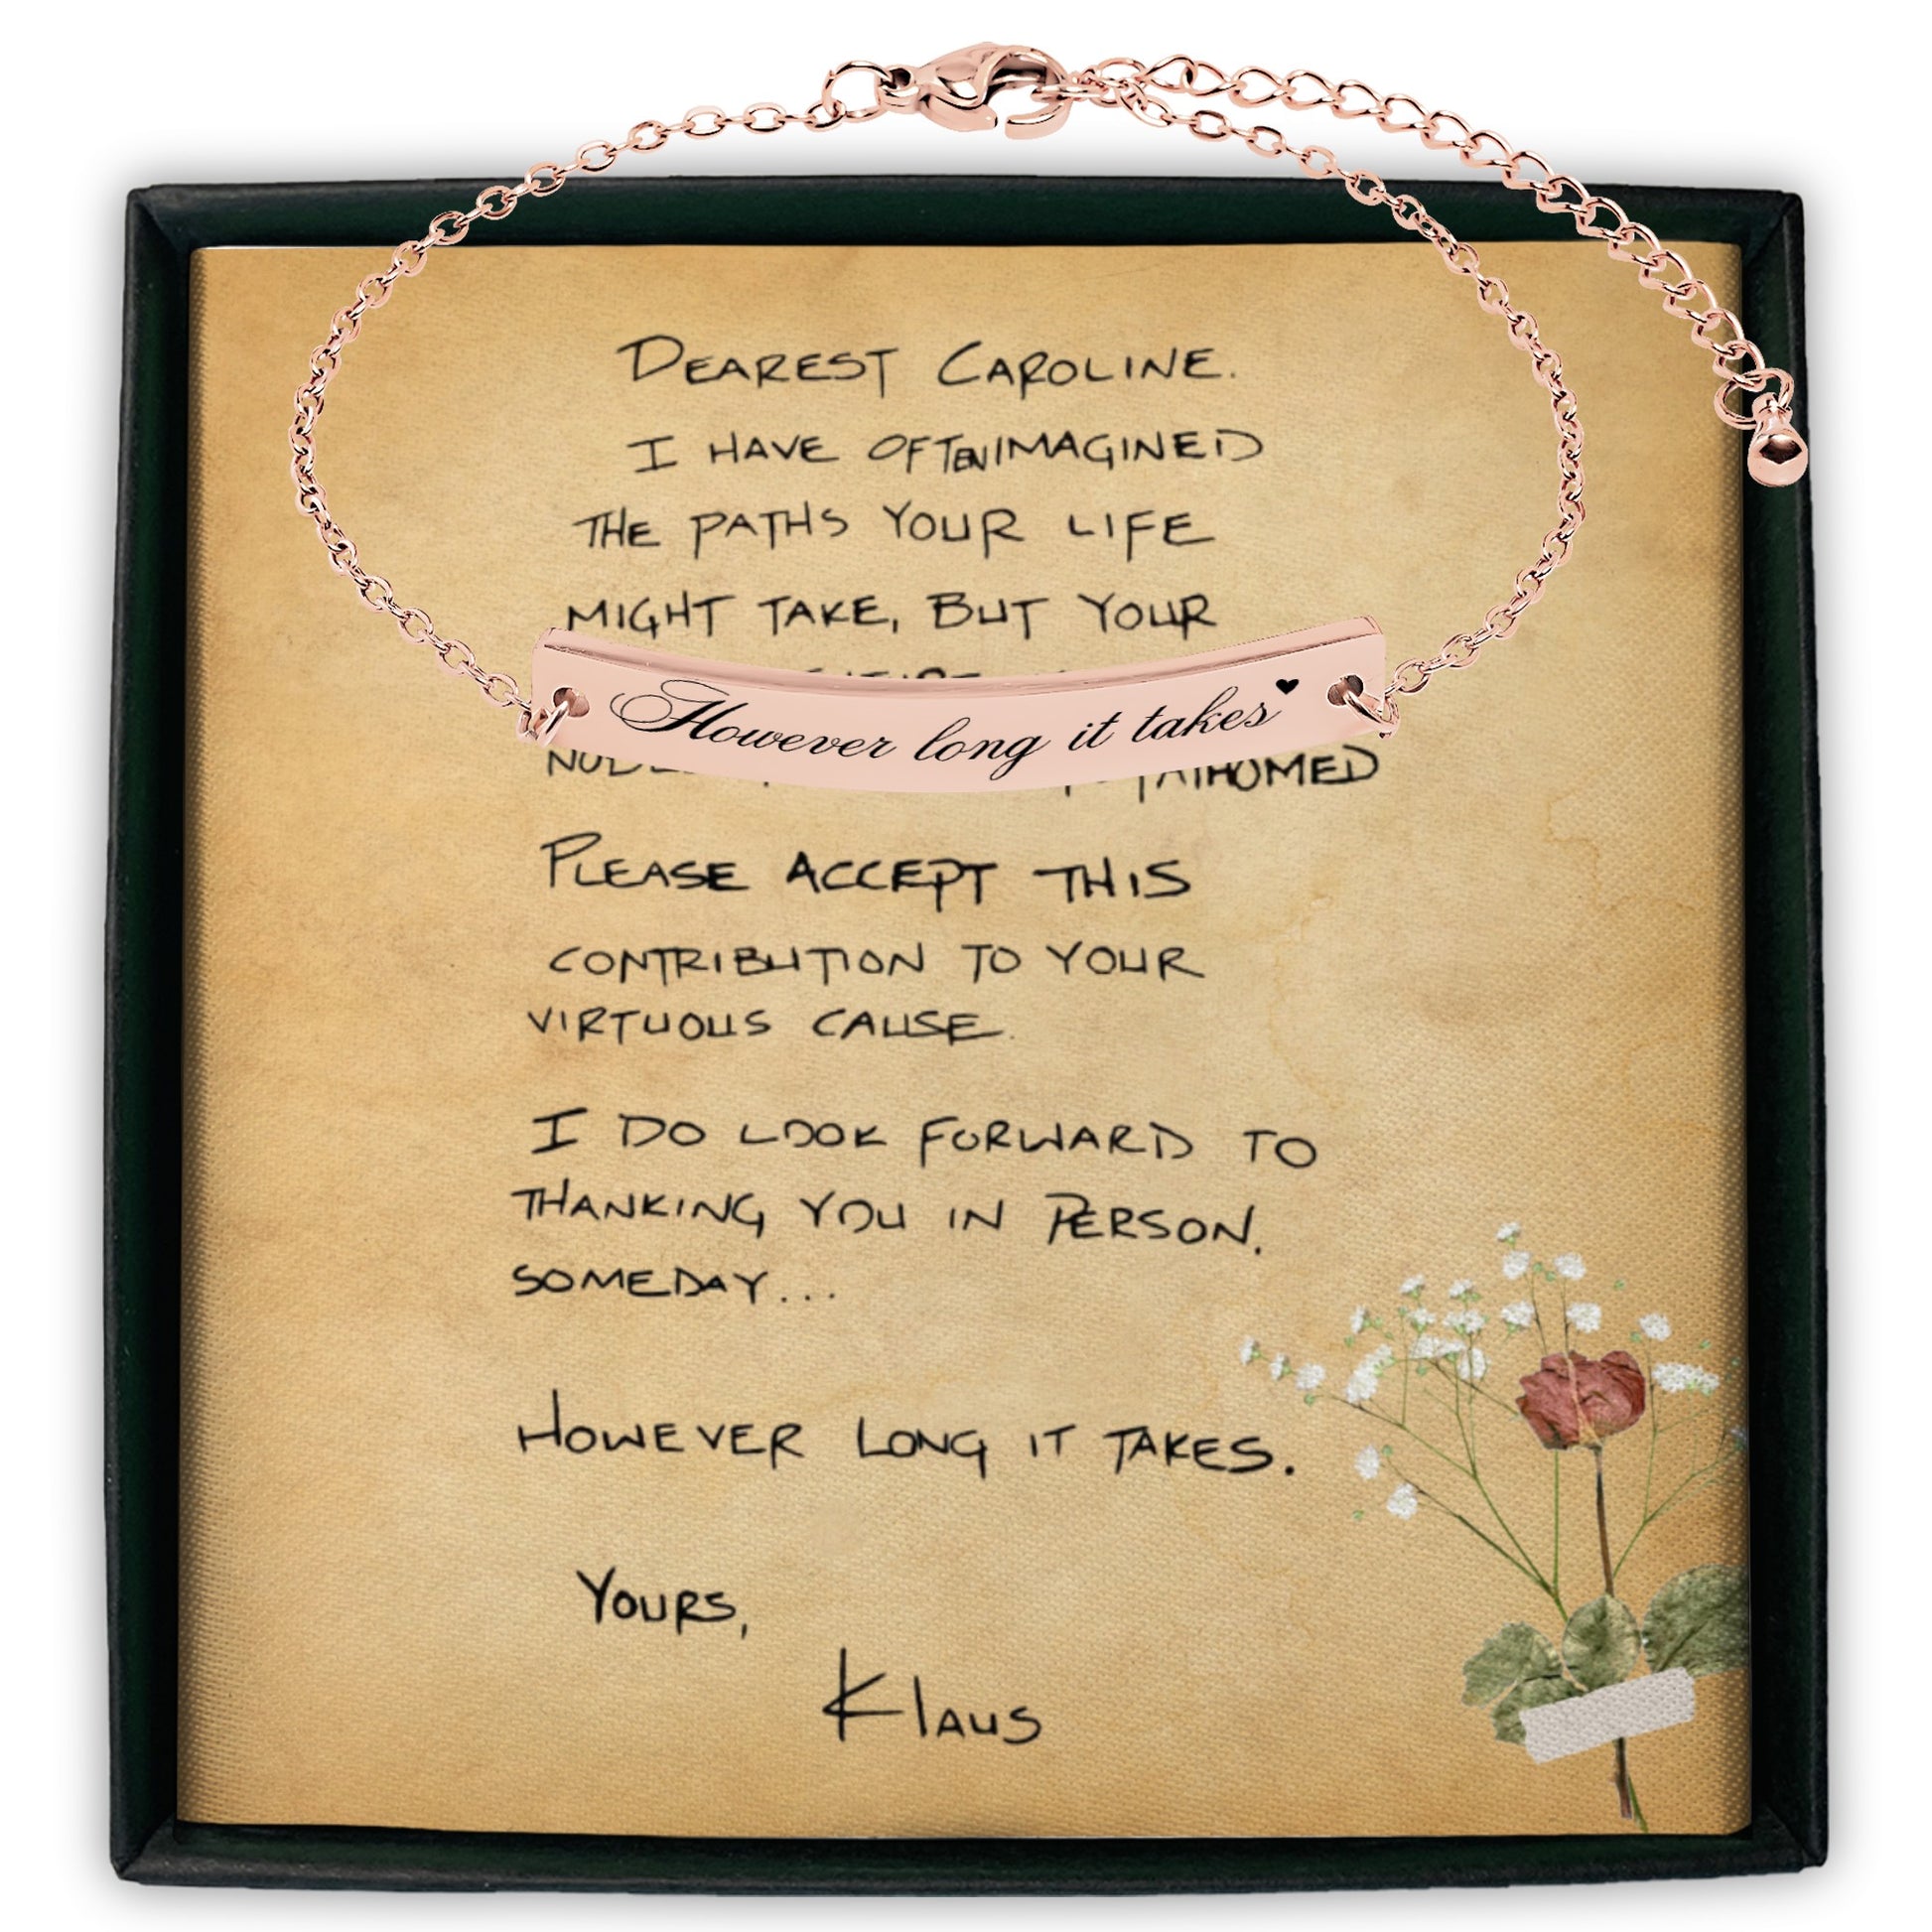 DEAREST CAROLINE.
I HAVE OFTEN IMAGINED
THE PATHS YOUR LIFE
MIGHT TAKE, BUT YOUR
However long it takes
PLEASE ACCEPT THIS
CONTRIBUTION TO YOUR
VIRTUOUS CAUSE.
I DO LOOK FORWARD TO
THANKING YOU IN PERSON.
SOMEDAY...
HOWEVER LONG IT TAKES.
YOURS,
KLAUS